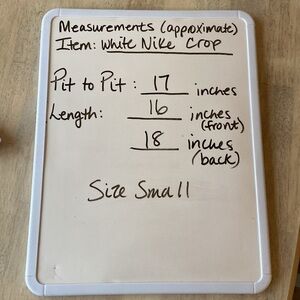 Measurements (approximate)
Item: White Nike Crop
Pit to Pit: 17 inches
Length: 16 inches
(front)
18 inches
(back)
Size Small